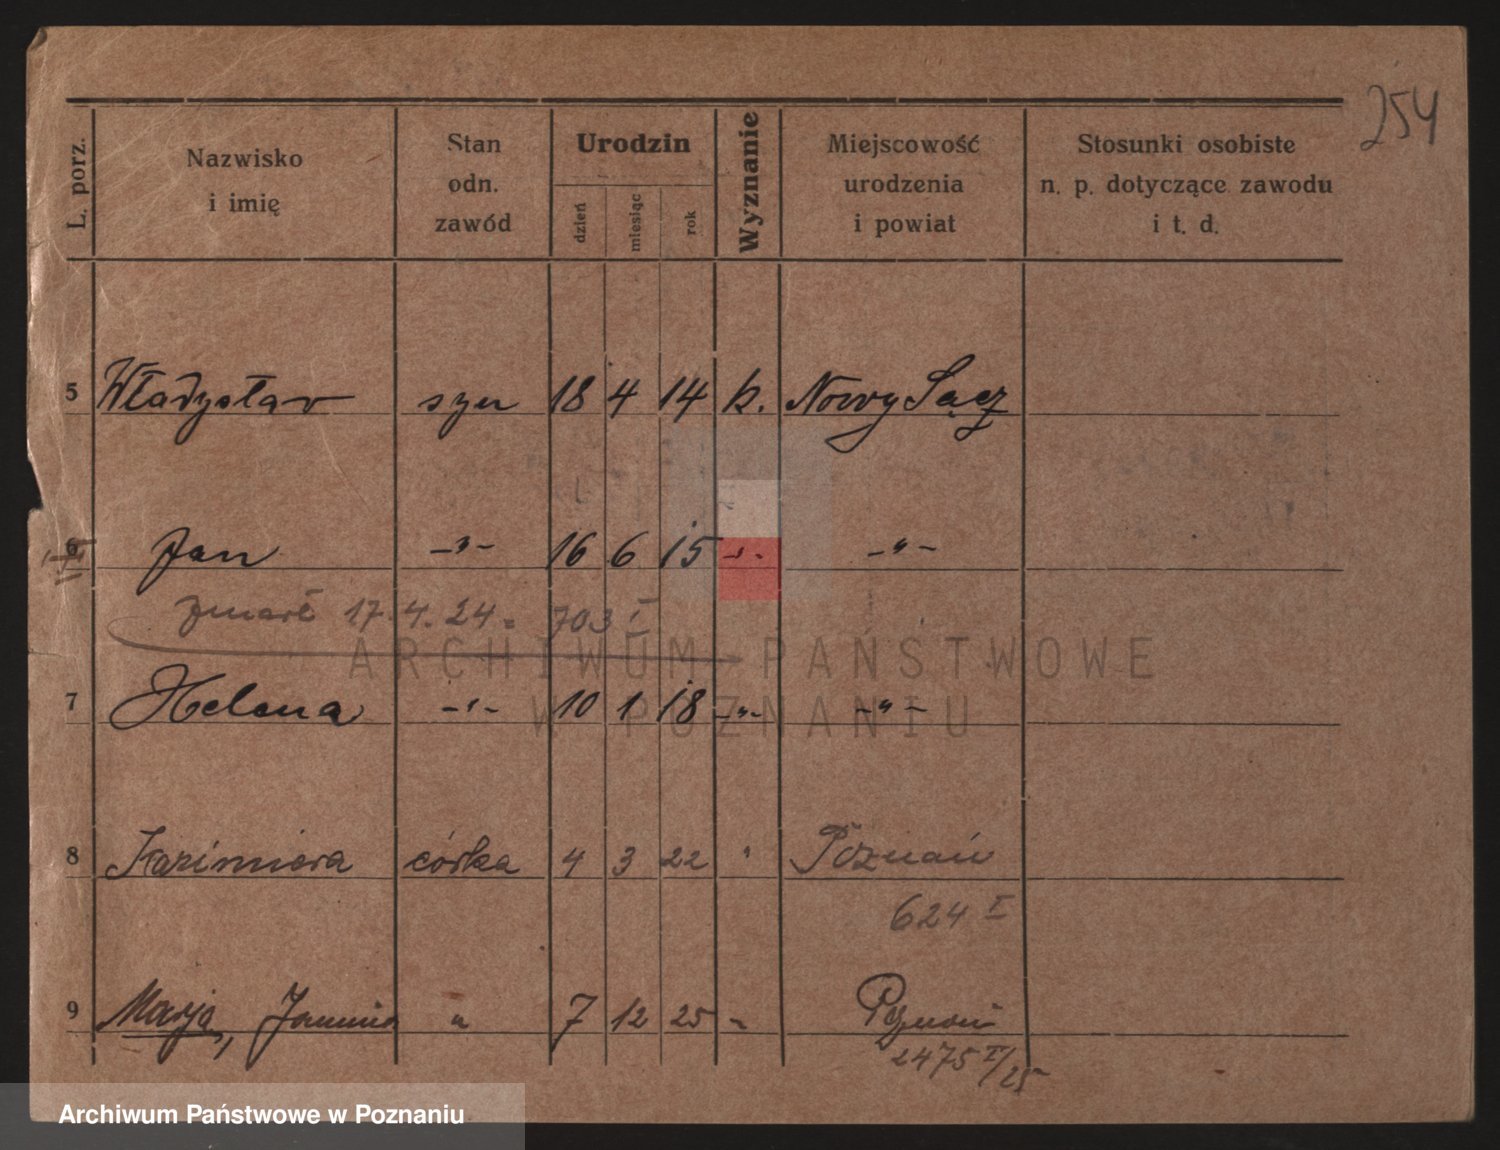 254
L. porz.
Nazwisko
i imię
Stan
odn.
zawód
Urodzin
dzień
miesiąc
rok
Wyznanie
Miejscowość
urodzenia
i powiat
Stosunki osobiste
n. p. dotyczące zawodu
i t. d.
5 Władysław syn 18 4 14 k. Nowy Sącz
6 Jan -"- 16 6 15 -"- -"-
zmarł 17.4.24. 703 I
7 Helena -"- 10 1 18 -"- -"-
8 Kazimiera córka 4 3 22 " Poznań
624 I
9 Marja, Janina " 7 12 25 " Poznań
2475 I/25
ARCHIWUM PAŃSTWOWE
W POZNANIU
Archiwum Państwowe w Poznaniu